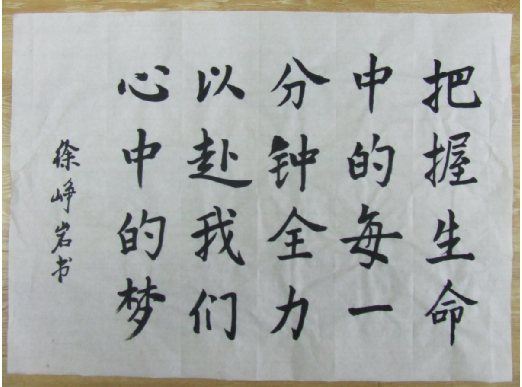 把握生命
中的每一
分钟全力
以赴我们
心中的梦
徐峥岩书